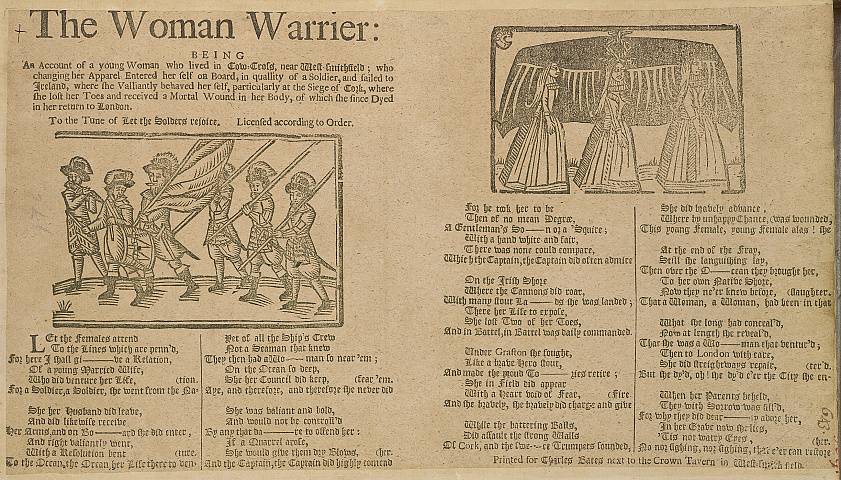 The Woman Warrier:
BEING
An Account of a young Woman who lived in Cow-Cross, near West-smithfield; who
changing her Apparel Entered her self on Board, in quallity of a Soldier, and sailed to
Ireland, where she Valliantly behaved her self, particularly at the Siege of Cork, where
she lost her Toes and received a Mortal Wound in her Body, of which she since Dyed
in her return to London.
To the Tune of Let the Soldiers rejoice. Licensed according to Order.
LEt the Females attend
To the Lines which are penn'd,
For here I shall gi——ve a Relation,
Of a young Married Wife,
Who did venture her Life, (ction.
For a Soldier, a Soldier, she went from the Na-
She her Husband did leave,
And did likewise receive
Her Arms, and on Bo——ard she did enter,
And right valiantly went,
With a Resolution bent (ture.
To the Ocean, the Ocean, her Life there to ven-
Yet of all the Ship's Crew
Not a Seaman that knew
They then had a Wo——man so near 'em;
On the Ocean so deep,
She her Council did keep, (fear 'em.
Aye, and therefore, and therefore she never did
She was valiant and bold,
And would not be controll'd
By any that da——re to offend her:
If a Quarrel arose,
She would give them dry Blows, (her.
And the Captain, the Captain did highly comend
For he took her to be
Then of no mean Degree,
A Gentleman's So——n or a 'Squire;
With a hand white and fair,
There was none could compare,
Which the Captain, the Captain did often admire
On the Irish Shore
Where the Cannons did roar,
With many stout La——ds she was landed;
There her Life to expose,
She lost Two of her Toes,
And in Battel, in Battel was daily commanded.
Under Grafton she fought,
Like a brave Hero stout,
And made the proud To——ries retire;
She in Field did appear
With a Heart void of Fear, (Fire.
And she bravely, she bravely did charge and give
While the battering Balls,
Did assault the strong Walls
Of Cork, and the swe——et Trumpets sounded,
She did bravely advance,
Where by unhappy Chance, (was wounded,
This young Female, young Female alas! she
At the end of the Fray,
Still she languishing lay,
Then over the O——cean they brought her,
To her own Native Shore,
Now they ne'er knew before, (slaughter.
That a Woman, a Woman, had been in that
What she long had conceal'd,
Now at length she reveal'd,
That she was a Wo——man that ventur'd;
Then to London with care,
She did streightways repair, (ter'd.
But she dy'd, oh! she dy'd e'er the City she en-
When her Parents beheld,
They with Sorrow was fill'd,
For why they did dear——ly adore her,
In her Grave now she lies,
'Tis not watry Eyes, (her.
No nor sighing, nor sighing, that e'er can restore
Printed for Charles Bates next to the Crown Tavern in West-smithfield.